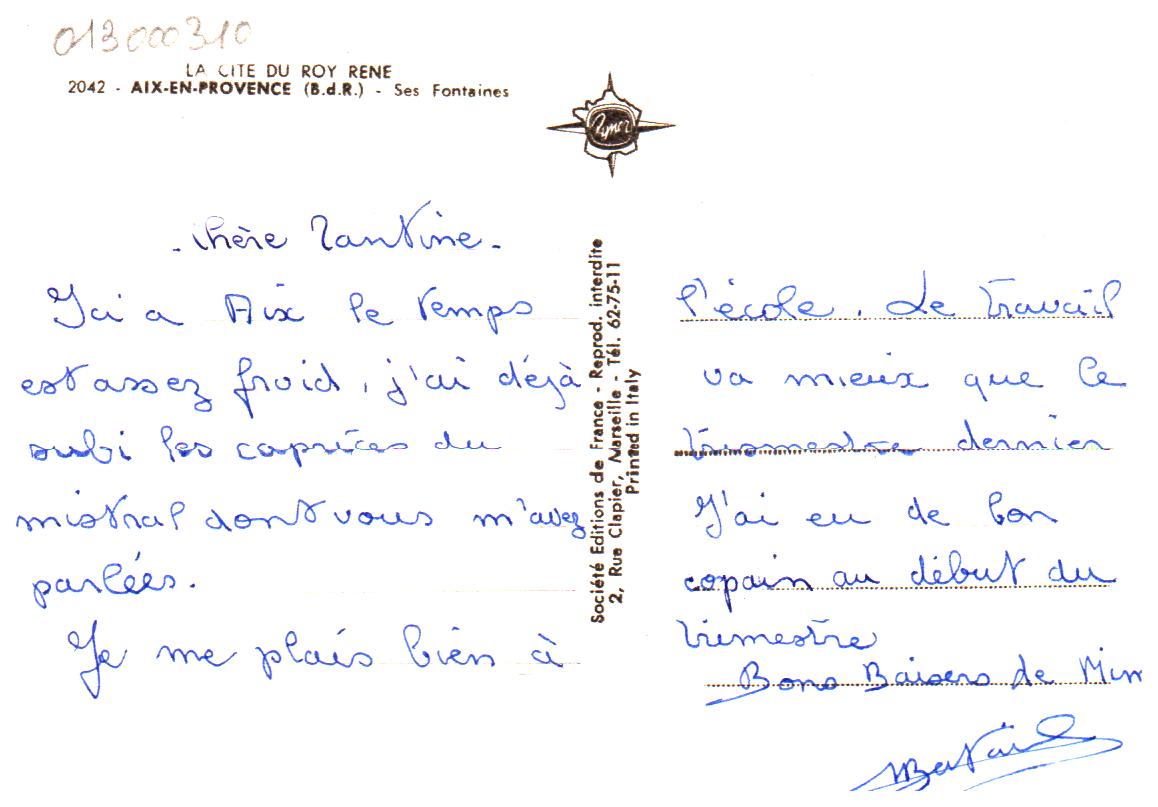 013000310
LA CITE DU ROY RENE
2042 - AIX-EN-PROVENCE (B.d.R.) - Ses Fontaines
- Chère Tantine -
Ici a Aix le temps
est assez froid, j'ai déjà
subi les caprices du
mistral dont vous m'avez
parlées.
Je me plais bien à
Société Editions de France - Reprod. interdite
2, Rue Clapier, Marseille - Tél. 62-75-11
Printed in Italy
l'école. Le travail
va mieux que le
trismestre dernier
J'ai eu de bon
copain au début du
trimestre
Bons Baisers de